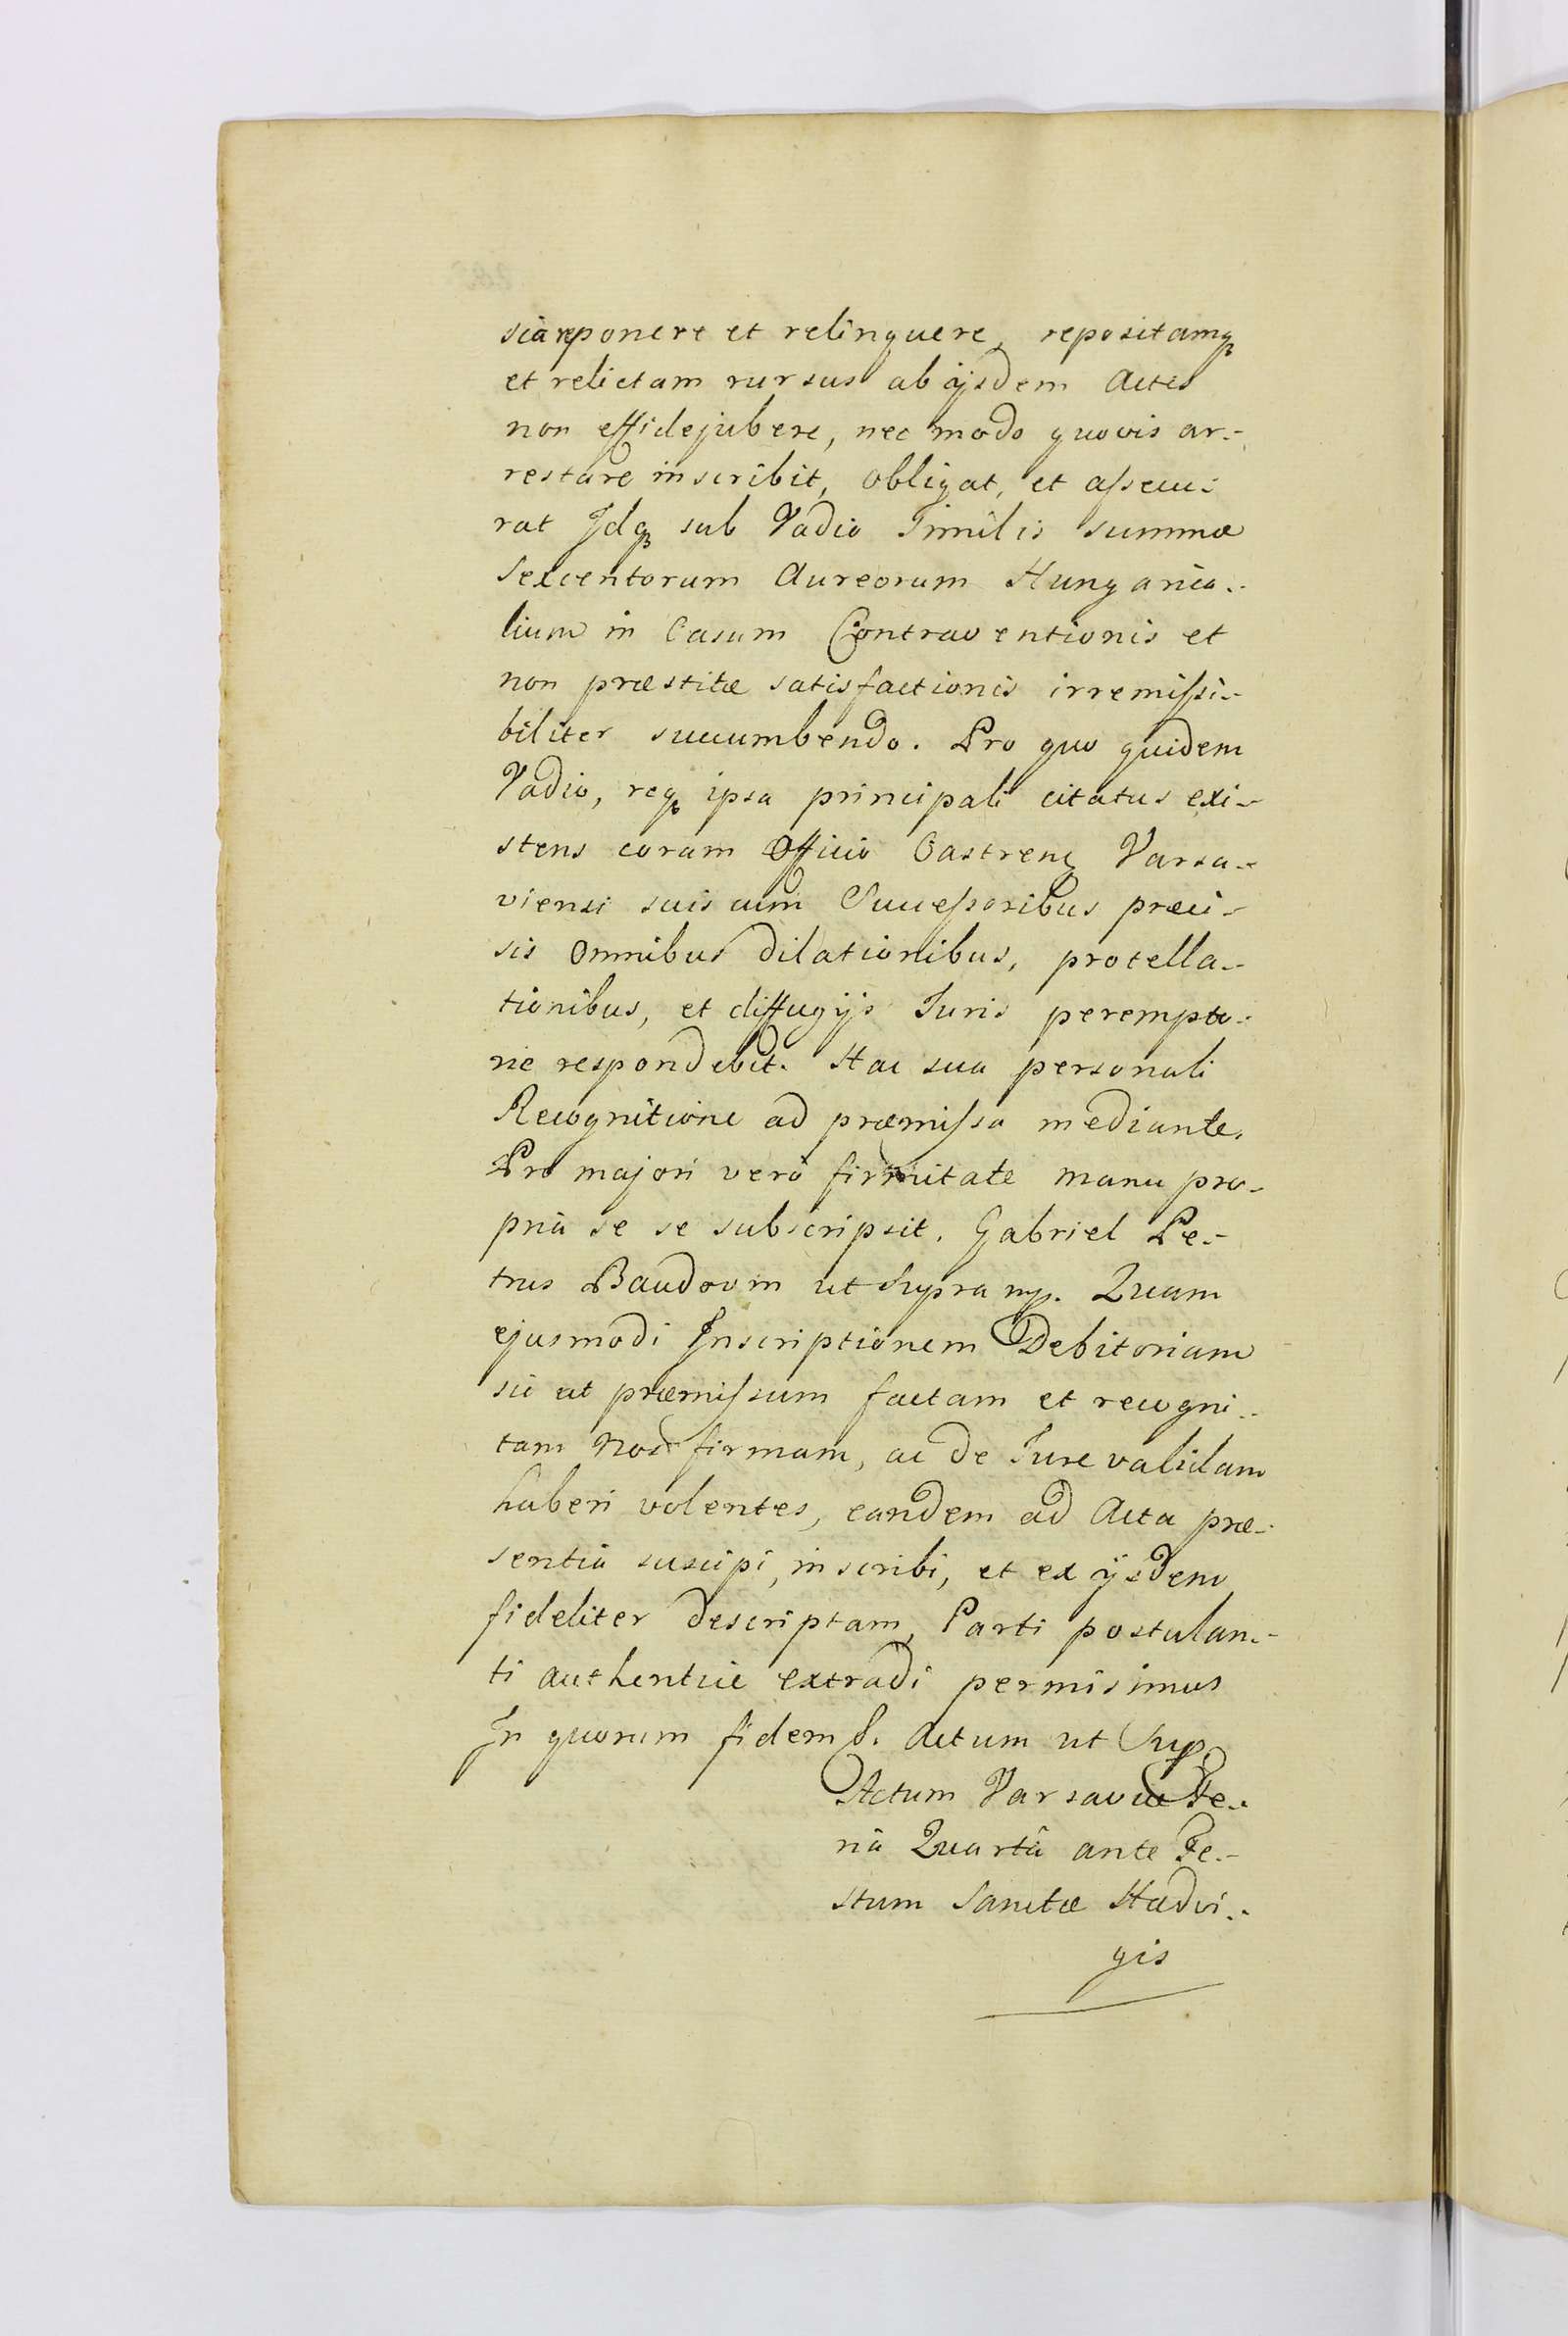 sia reponere et relinquere, repositamq3
et relictam rursus ab ijsdem Actis
non effidejubere, nec modo quovis ar-
restare inscribit, obligat, et assecu-
rat Idq3 sub Vadio Similis summæ
Sexcentorum Aureorum Hungarica-
lium in Casum Contraventionis et
non præstitæ satisfactionis irremissi-
biliter succumbendo. Pro quo quidem
Vadio, req3 ipsa principali citatus exi-
stens coram Officio Castren3 Varsa-
viensi suis cum Successoribus præci-
sis Omnibus dilationibus, protella-
tionibus, et diffugijs Juris perempto-
rie respondebit. Hac sua personali
Recognitione ad præmissa mediante.
Pro majori verò firmitate manu pro-
pria se se subscripsit. Gabriel Pe-
trus Baudovin ut supra mp. Quam
ejusmodi Inscriptionem Debitoriam
sic ut præmissum factam et recogni-
tam Nos firmam, ac de Jure validam
haberi volentes, eandem ad Acta præ-
sentia suscipi, inscribi, et ex ijsdem
fideliter descriptam, Parti postulan-
ti authenticè extradi permisimus
In quorum fidem S. Actum ut Sup.
Actum Varsaviæ Fe-
riâ Quartâ ante Fe-
stum Sanctæ Hædvi-
gis